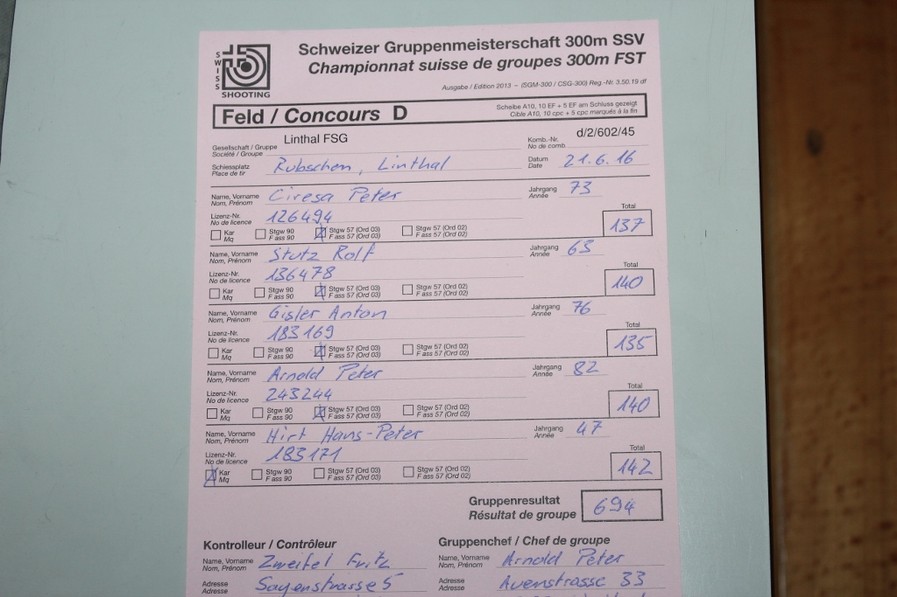 SWISS
SHOOTING
Schweizer Gruppenmeisterschaft 300m SSV
Championnat suisse de groupes 300m FST
Ausgabe / Edition 2013 – (SGM-300 / CSG-300) Reg.-Nr. 3.50.19 df
Feld / Concours D
Scheibe A10, 10 EF + 5 EF am Schluss gezeigt
Cible A10, 10 cpc + 5 cpc marqués à la fin
Gesellschaft / Gruppe Linthal FSG Komb.-Nr. d/2/602/45
Société / Groupe No de comb.
Schiessplatz Rübschen, Linthal Datum 21.6.16
Place de tir Date
Name, Vorname Ciresa Peter Jahrgang 73
Nom, Prénom Année
Lizenz-Nr. 126494 Total
No de licence 137
Kar Stgw 90 Stgw 57 (Ord 03) Stgw 57 (Ord 02)
Mq F ass 90 F ass 57 (Ord 03) F ass 57 (Ord 02)
Name, Vorname Stutz Rolf Jahrgang 63
Nom, Prénom Année
Lizenz-Nr. 136478 Total
No de licence 140
Kar Stgw 90 Stgw 57 (Ord 03) Stgw 57 (Ord 02)
Mq F ass 90 F ass 57 (Ord 03) F ass 57 (Ord 02)
Name, Vorname Gisler Anton Jahrgang 76
Nom, Prénom Année
Lizenz-Nr. 183169 Total
No de licence 135
Kar Stgw 90 Stgw 57 (Ord 03) Stgw 57 (Ord 02)
Mq F ass 90 F ass 57 (Ord 03) F ass 57 (Ord 02)
Name, Vorname Arnold Peter Jahrgang 82
Nom, Prénom Année
Lizenz-Nr. 243244 Total
No de licence 140
Kar Stgw 90 Stgw 57 (Ord 03) Stgw 57 (Ord 02)
Mq F ass 90 F ass 57 (Ord 03) F ass 57 (Ord 02)
Name, Vorname Hirt Hans-Peter Jahrgang 47
Nom, Prénom Année
Lizenz-Nr. 183171 Total
No de licence 142
Kar Stgw 90 Stgw 57 (Ord 03) Stgw 57 (Ord 02)
Mq F ass 90 F ass 57 (Ord 03) F ass 57 (Ord 02)
Gruppenresultat 694
Résultat de groupe
Kontrolleur / Contrôleur Gruppenchef / Chef de groupe
Name, Vorname Zweifel Fritz Name, Vorname Arnold Peter
Nom, Prénom Nom, Prénom
Adresse Sagenstrasse 5 Adresse Auenstrasse 33
Adresse Adresse